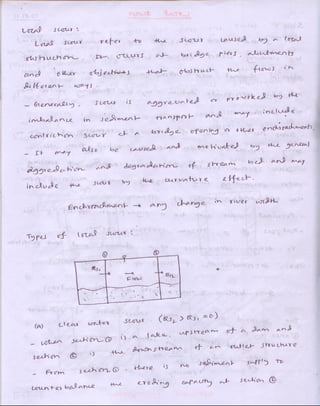 Local scour :
Local scour refer to the scour caused by a local
obstruction. It occurs at bridge piers, abutments
and other objections that obstruct the flows in
different ways.
- Generally, scour is aggravated or provoked by the
imbalance in sediment transport and may include
contriction scour at a bridge opening or other encroachments
- It may also be caused and motivated by the general
aggredation and degradation of stream bed and may
include the scour by the curvature effect.
Encroachment → any change in river width
Types of local scour :
① ②
Qs₁ → → Qs₂
Flow
(A) clear water scour (Qs₂ > Qs₁ = 0)
- When section ① is a lake, upstream of a dam and
section ② is the downstream of an outlet structure
- From section ①, there is no sediment supply to
counterbalance the eroding capacity at section ②